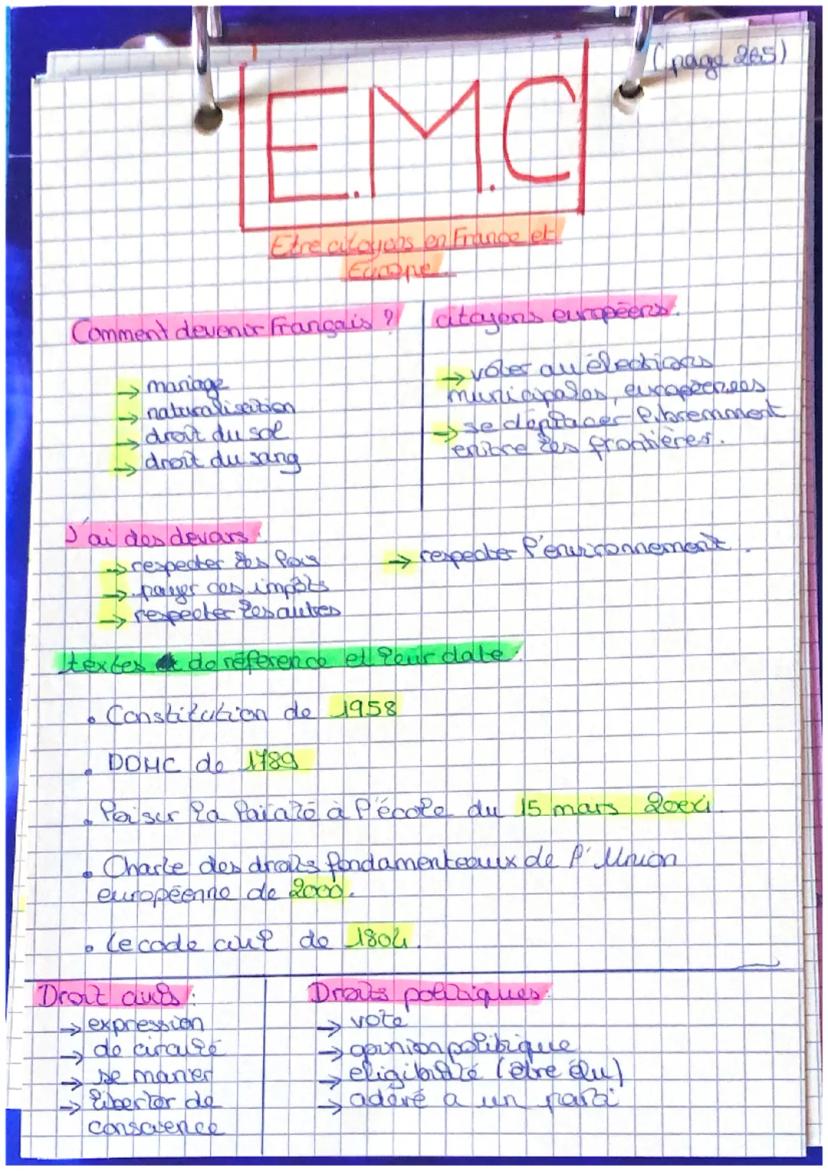 (page 265)
E.M.C
Etre citoyens en France et
Europe
Comment devenir français ?
→ mariage
→ naturalisation
→ droit du sol
→ droit du sang
citoyens européens.
→ voter au élections
municipales, européennes
→ se déplacer librement
entre les frontières.
J'ai des devoirs:
→ respecter les lois
→ payer ces impôts
→ respecter les autres
→ respecter l'environnement.
textes de réference et leur date:
• Constitution de 1958
• DDHC de 1789
• Loi sur la laïcité à l'école du 15 mars 2004.
• Charte des droits fondamenteaux de l'Union
européenne de 2000.
• Le code civil de 1804.
Droit civils:
→ expression
→ de circulé
→ se marier
→ liberter de
conscience
Droits politiques:
→ vote
→ opinion politique
→ eligibilité (être élu)
→ adéré a un parti